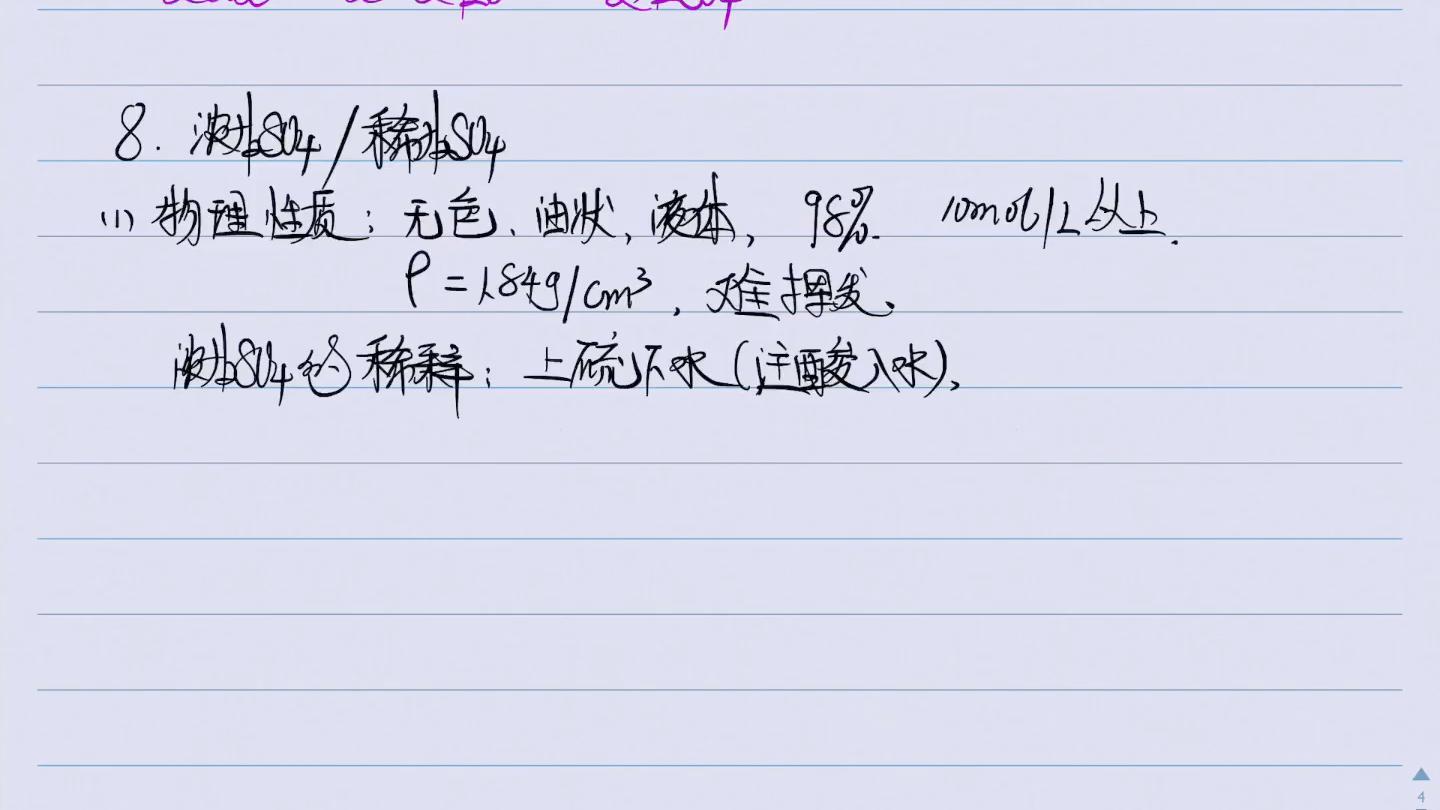 8. 浓H₂SO₄/稀H₂SO₄
(1) 物理性质: 无色、油状, 液体, 98%. 10mol/L以上.
ρ=1.84g/cm³, 难挥发、
浓H₂SO₄的稀释: 上硫下水(注酸入水),
4